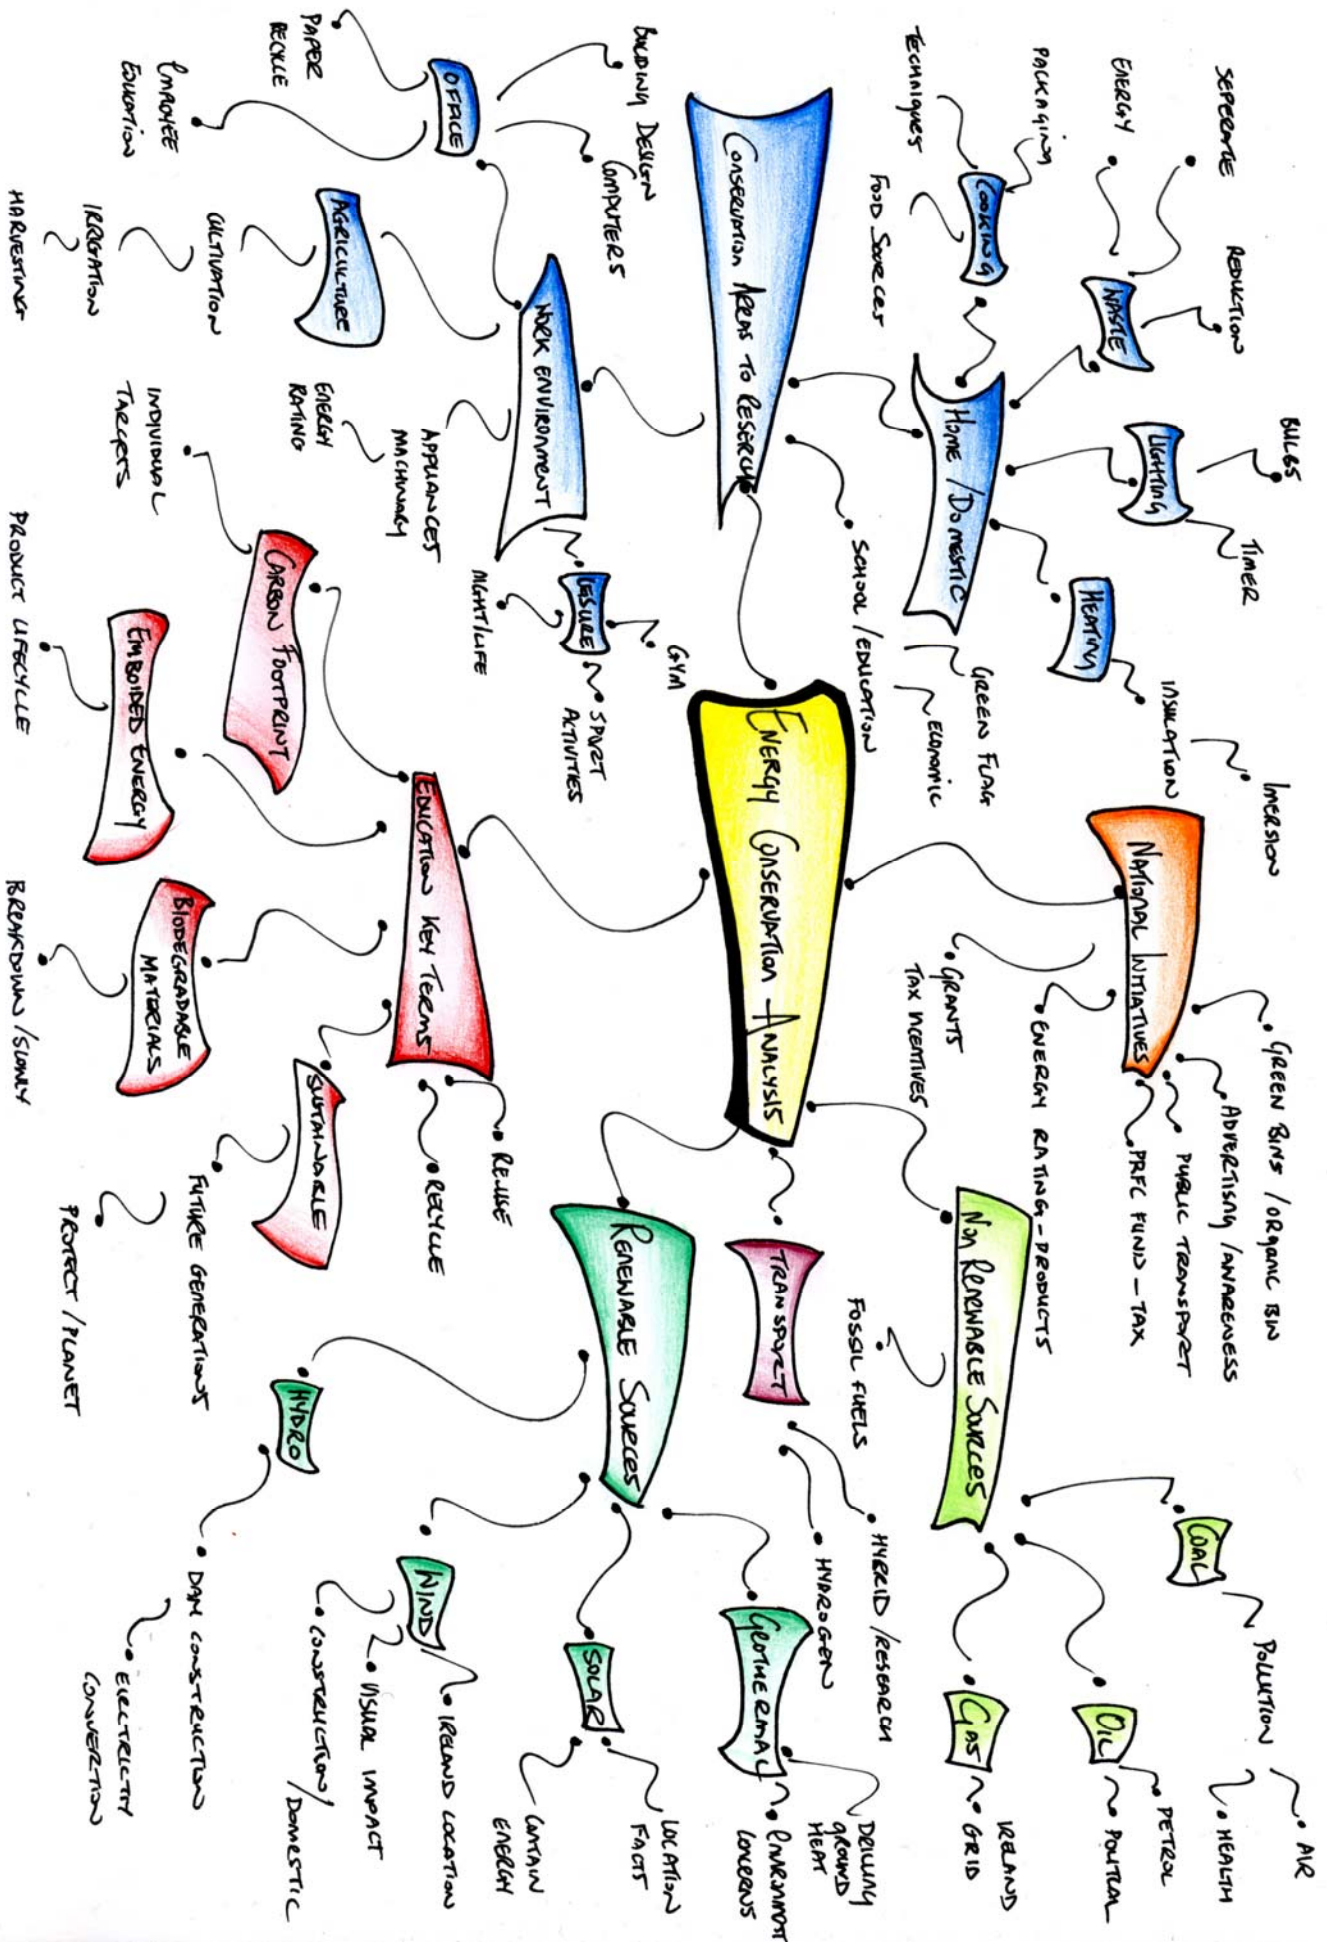 ENERGY CONSERVATION ANALYSIS
CONSERVATION AREAS TO RESERCH
HOME / DOMESTIC
COOKING
TECHNIQUES
PACKAGING
FOOD SOURCES
WASTE
ENERGY
SEPERATE
REDUCTION
LIGHTING
BULBS
TIMER
HEATING
INSULATION
IMERSION
GREEN FLAG
ECONOMIC
SCHOOL / EDUCATION
WORK ENVIRONMENT
OFFICE
BUILDING DESIGN
COMPUTERS
PAPER
RECYCLE
EMPLOYEE
EDUCATION
AGRICULTURE
CULTIVATION
IRRIGATION
HARVESTING
APPLIANCES
MACHINARY
ENERGY
RATING
LEISURE
GYM
SPORT
ACTIVITIES
NIGHT/LIFE
NATIONAL INITIATIVES
GREEN BINS / ORGANIC BIN
ADVERTISING / AWARENESS
PUBLIC TRANSPORT
PRFC FUND - TAX
ENERGY RATING - PRODUCTS
GRANTS
TAX INCENTIVES
NON RENEWABLE SOURCES
FOSSIL FUELS
COAL
POLLUTION
AIR
HEALTH
OIL
PETROL
POLITCAL
GAS
IRELAND
GRID
TRANSPORT
HYBRID / RESEARCH
HYDROGEN
RENEWABLE SOURCES
GEOTHERMAL
DRILLING
GROUND
HEAT
CONCERNS
SOLAR
LOCATION
FACTS
CONTAIN
ENERGY
WIND
IRELAND LOCATION
VISUAL IMPACT
CONSTRUCTION / DOMESTIC
HYDRO
DAM CONSTRUCTION
ELECTRICITY
CONVERTION
EDUCATION KEY TERMS
CARBON FOOTPRINT
INDIVIDUAL
TARGETS
EMBOIDED ENERGY
PRODUCT LIFECYCLE
BIODEGRADABLE
MATERIALS
BREAKDOWN / SLOWLY
SUSTAINABLE
FUTURE GENERATIONS
PROTECT / PLANET
REUSE
RECYCLE